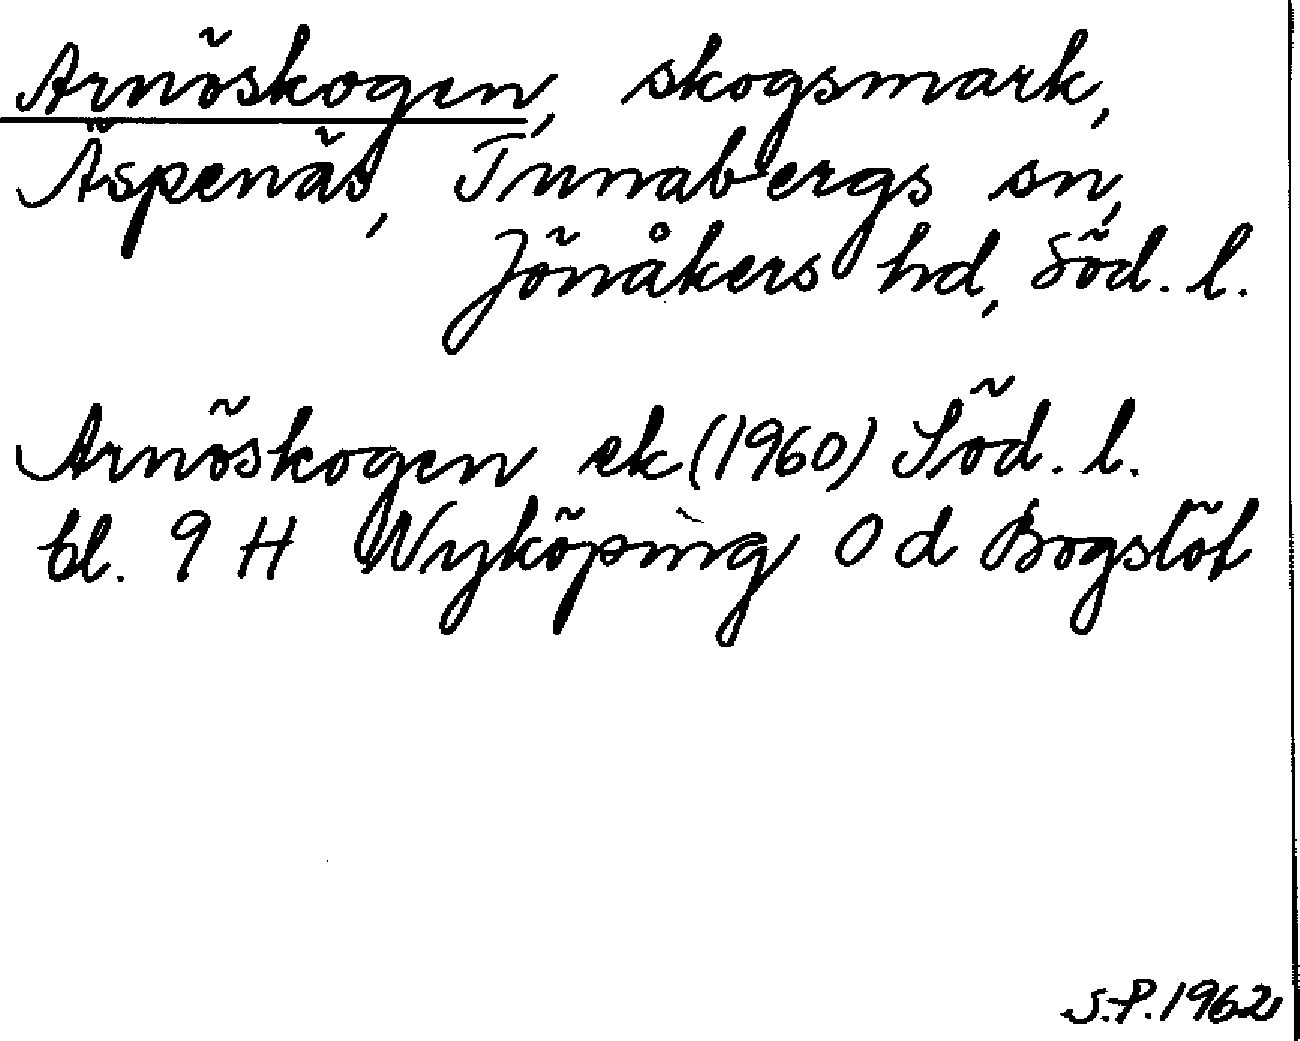 Arnöskogen, skogsmark,
Äspenäs, Tunabergs sn,
Jönåkers hd, Söd. l.
Arnöskogen ek (1960) Söd. l.
bl. 9 H Nyköping 0 d Bogslöt
S.P. 1962